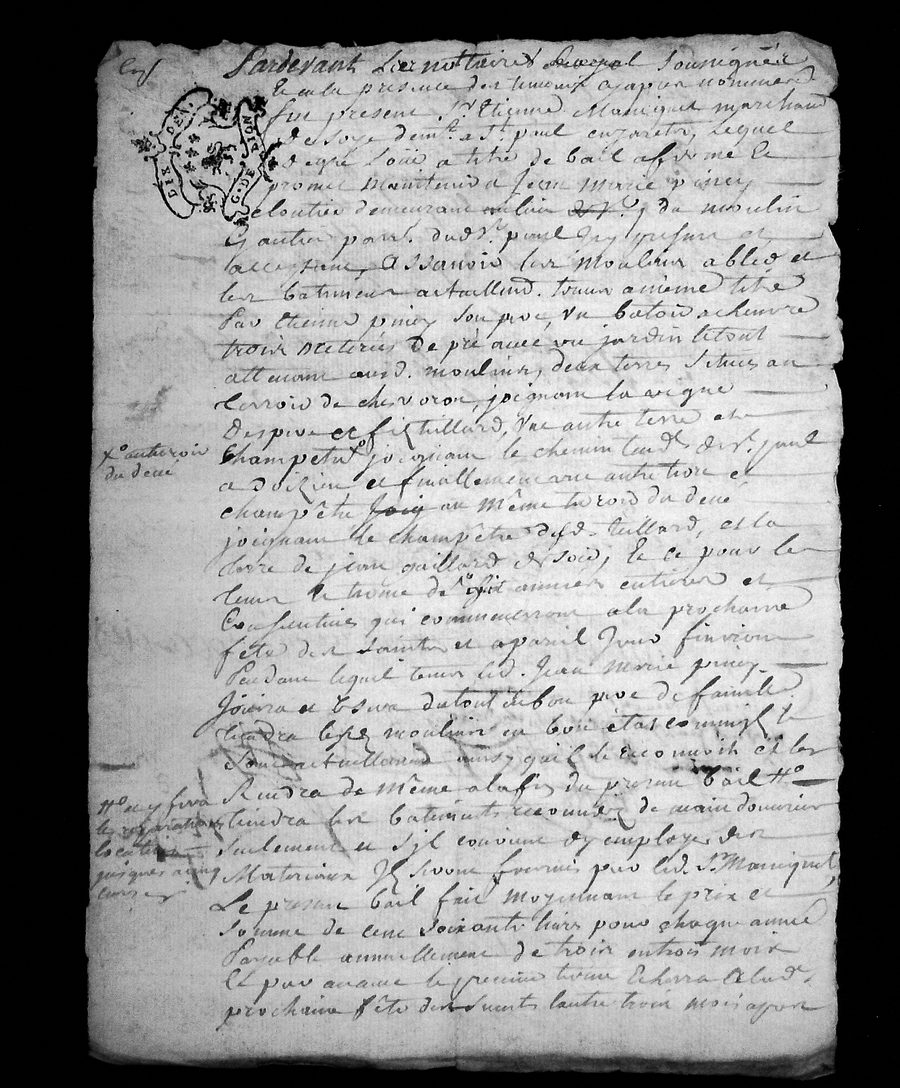 Pardevant Le nottaire Royal Soussigné
Et en la presence des temoins cy apres nommés
fut present Sr. Etienne Maniquet marchand
de Soye demt. a St. paul en jarest, Lequel
de gré a titre de bail a ferme Et
promet Maintenir a Jean Marie piney
cloutier demeurant au lieu du moulin
gautier parr. dud. St. paul icy present et
acceptant, assavoir les Moulins a bled et
les batiments actuellemt. tenus a même titre
Par Etienne piney Son pere, un batoir a chanvre
trois meterées De pré avec un jardin le tout
attenant auxd. moulins, deux terres Situés au
terroir de chevoron, joignant la vigne
tuillard, une autre terre et
Champêtre Xo joignant le chemin tendt. de St. paul
a doizieu et finallement une autre terre et
champêtre au même terroir du deué
joignant le champêtre dud. tuillard, et la
terre de jean gaillard et Et ce pour le
tems et terme de Six années entieres et
Consecutives qui commenceront a la prochaine
fête des Saints et a pareil Jour finiront
Pendant lequel tems led. Jean Marie piney
Jouira et Usera du tout en bon pere de famille
tiendra lesd. moulins en bon état comme il le
sont actuellement ainsy qu'il le Reconnoit et les
Rendra de même a la fin du present bail #o
tiendra les batiments recouvers de main d'ouvrier
seulement et S'il convient d'y employer des
Materiaux Il seront fournis par led. Sr. Maniquet,
Le present bail fait moyennant le prix et
Somme de cent soixante livres pour chaque année
Payable annuellement de trois en trois mois
Et par avance le premier terme Echerra a lad.
prochaine fête des Saints l'autre trois mois apres
DIX DEN.
G. DE LION
Xo au terroir
du deué
#o et y fera
les reparations
locatives
jusques a cinq